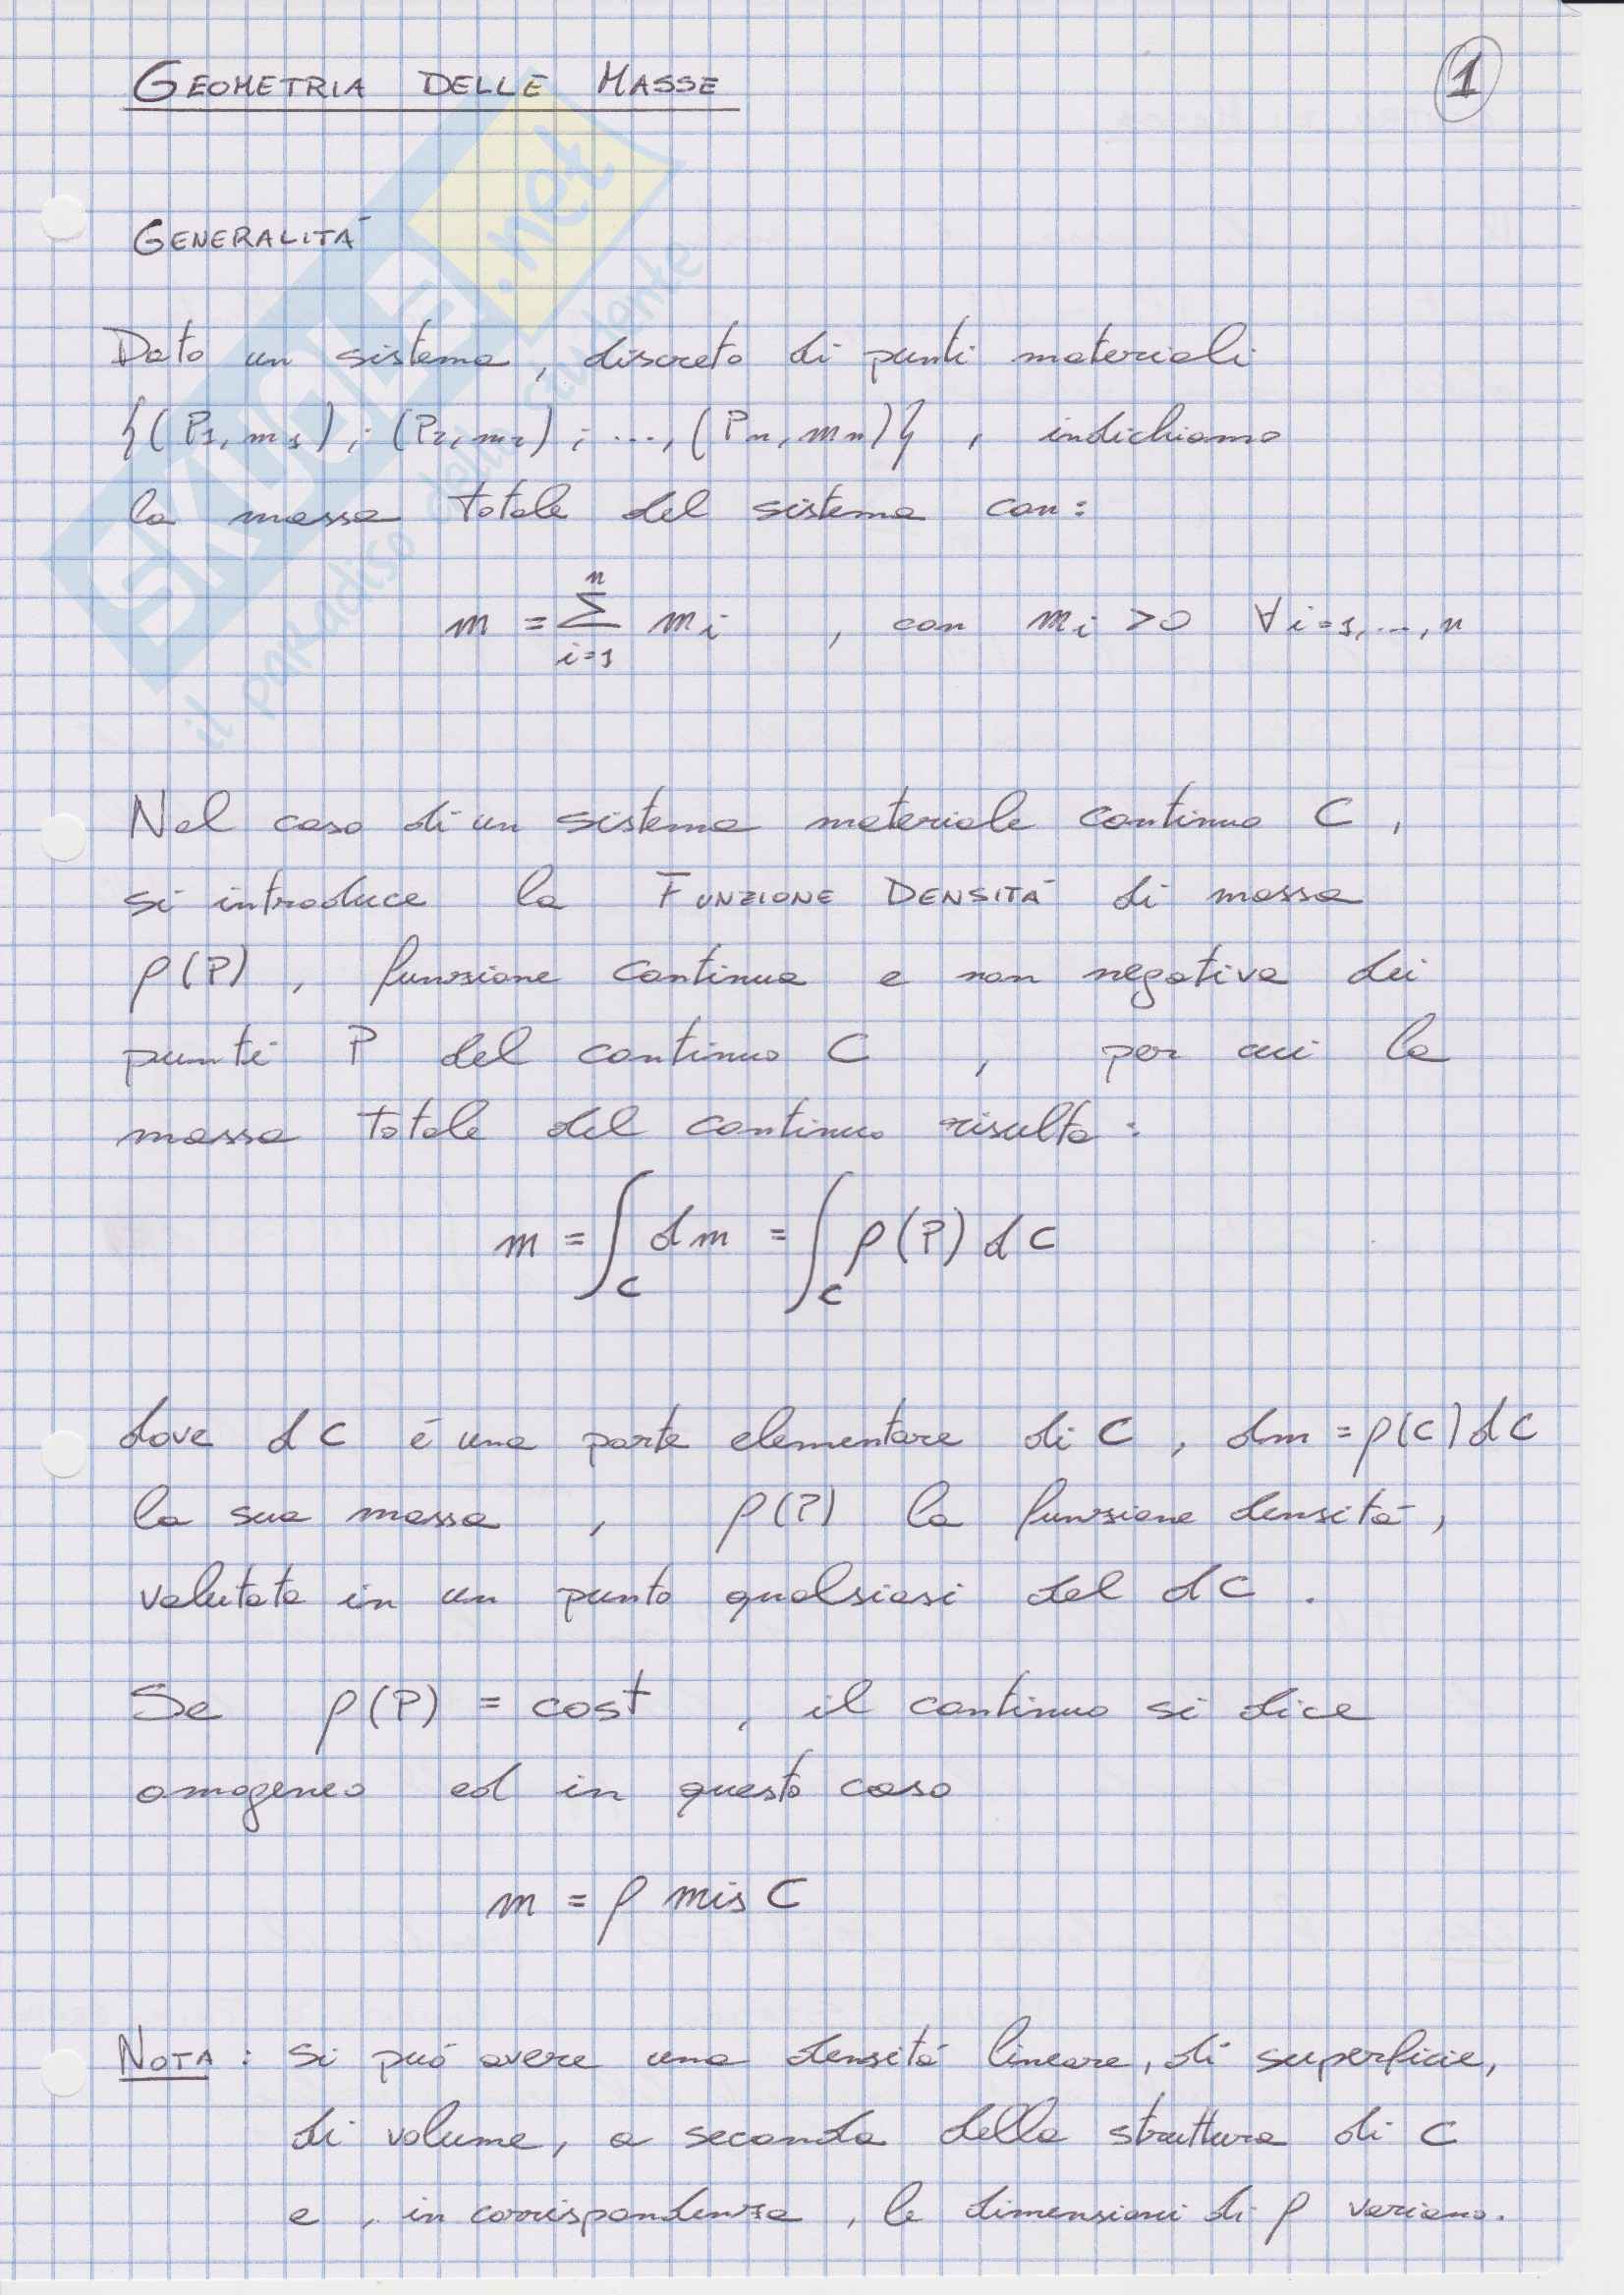 GEOMETRIA DELLE MASSE
1
GENERALITÁ
Dato un sistema, discreto di punti materiali
{(P1, m1); (P2, m2); ..., (Pn, mn)}, indichiamo
la massa totale del sistema con:
m = ∑_{i=1}^{n} m_i , con m_i > 0 ∀ i=1,...,n
Nel caso di un sistema materiale continuo C,
si introduce la FUNZIONE DENSITÁ di massa
ρ(P), funzione continua e non negativa dei
punti P del continuo C, per cui la
massa totale del continuo risulta:
m = ∫_C dm = ∫_C ρ(P) dC
dove dC é una parte elementare di C, dm = ρ(C) dC
la sua massa, ρ(P) la funzione densitá,
valutata in un punto qualsiasi del dC.
Se ρ(P) = cost, il continuo si dice
omogeneo ed in questo caso
m = ρ mis C
NOTA: si puó avere una densitá lineare, di superficie,
di volume, a seconda della struttura di C
e, in corrispondenza, le dimensioni di ρ variano.
SKUOLA.net
il paradiso dello studente